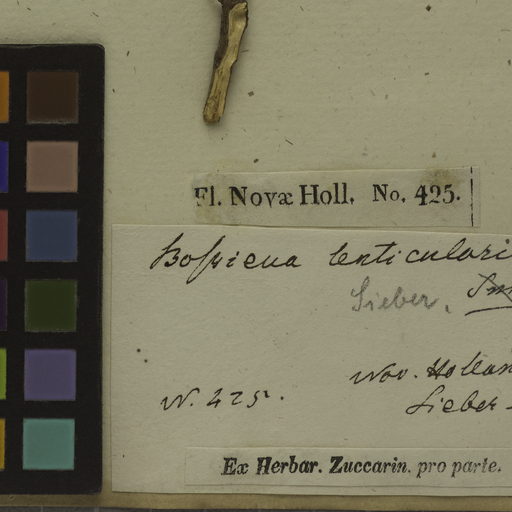 Fl. Novæ Holl. No. 425.
Bossieua lenticulari
Sieber.
Nov. Hollan
N. 425.
Sieber
Ex Herbar. Zuccarin. pro parte.